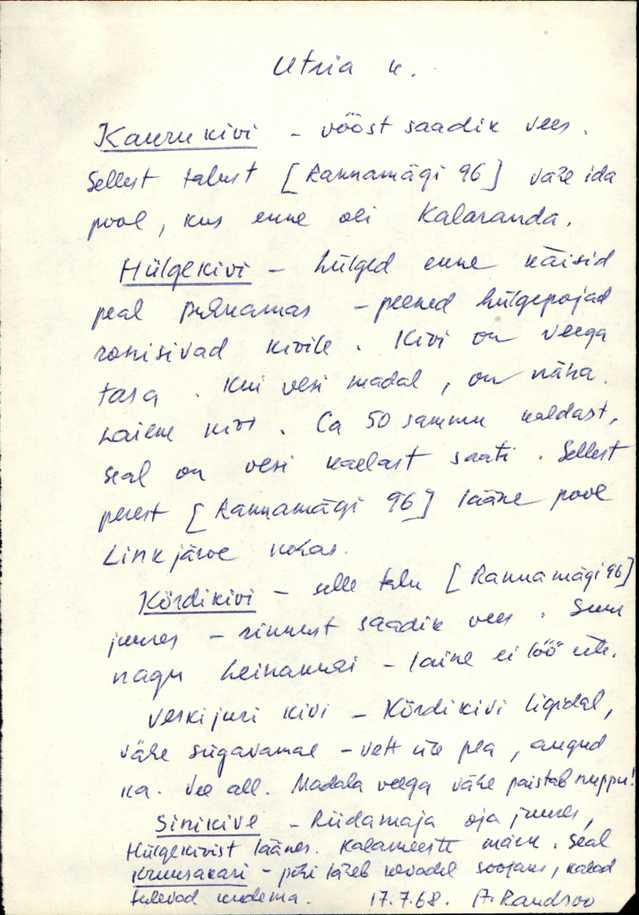 Utria k.
Kaurukivi – vööst saadik vees.
Sellest talust [Rannamägi 96] vähe ida
pool, kus enne oli kalaranda.
Hülgekivi – hülged enne käisid
peal puhkamas – peened hülgepojad
ronisivad kivile. Kivi on veega
tasa. Kui vesi madal, on näha.
Laiem kivi. Ca 50 sammu kaldast,
seal on vesi kaelast saati. Sellest
perest [Rannamägi 96] lääne poole
Linkjärve kohas.
Kördikivi – selle talu [Rannamägi 96]
juures – rinnust saadik vees. Suur
nagu heinakuhi – laine ei löö üle.
Veskijuri kivi – Kördikivi ligidal,
vähe sügavamal – vett üle pea, augud
ka. Vee all. Madala veega vähe paistab nuppu!
Sinikive – Riidamaja oja juures,
Hülgekivist läänes. Kalameeste märk. Seal
kruusakari – põhi läheb kevadel soojaks, kalad
tulevad kudema. 17.7.68. A. Randsoo